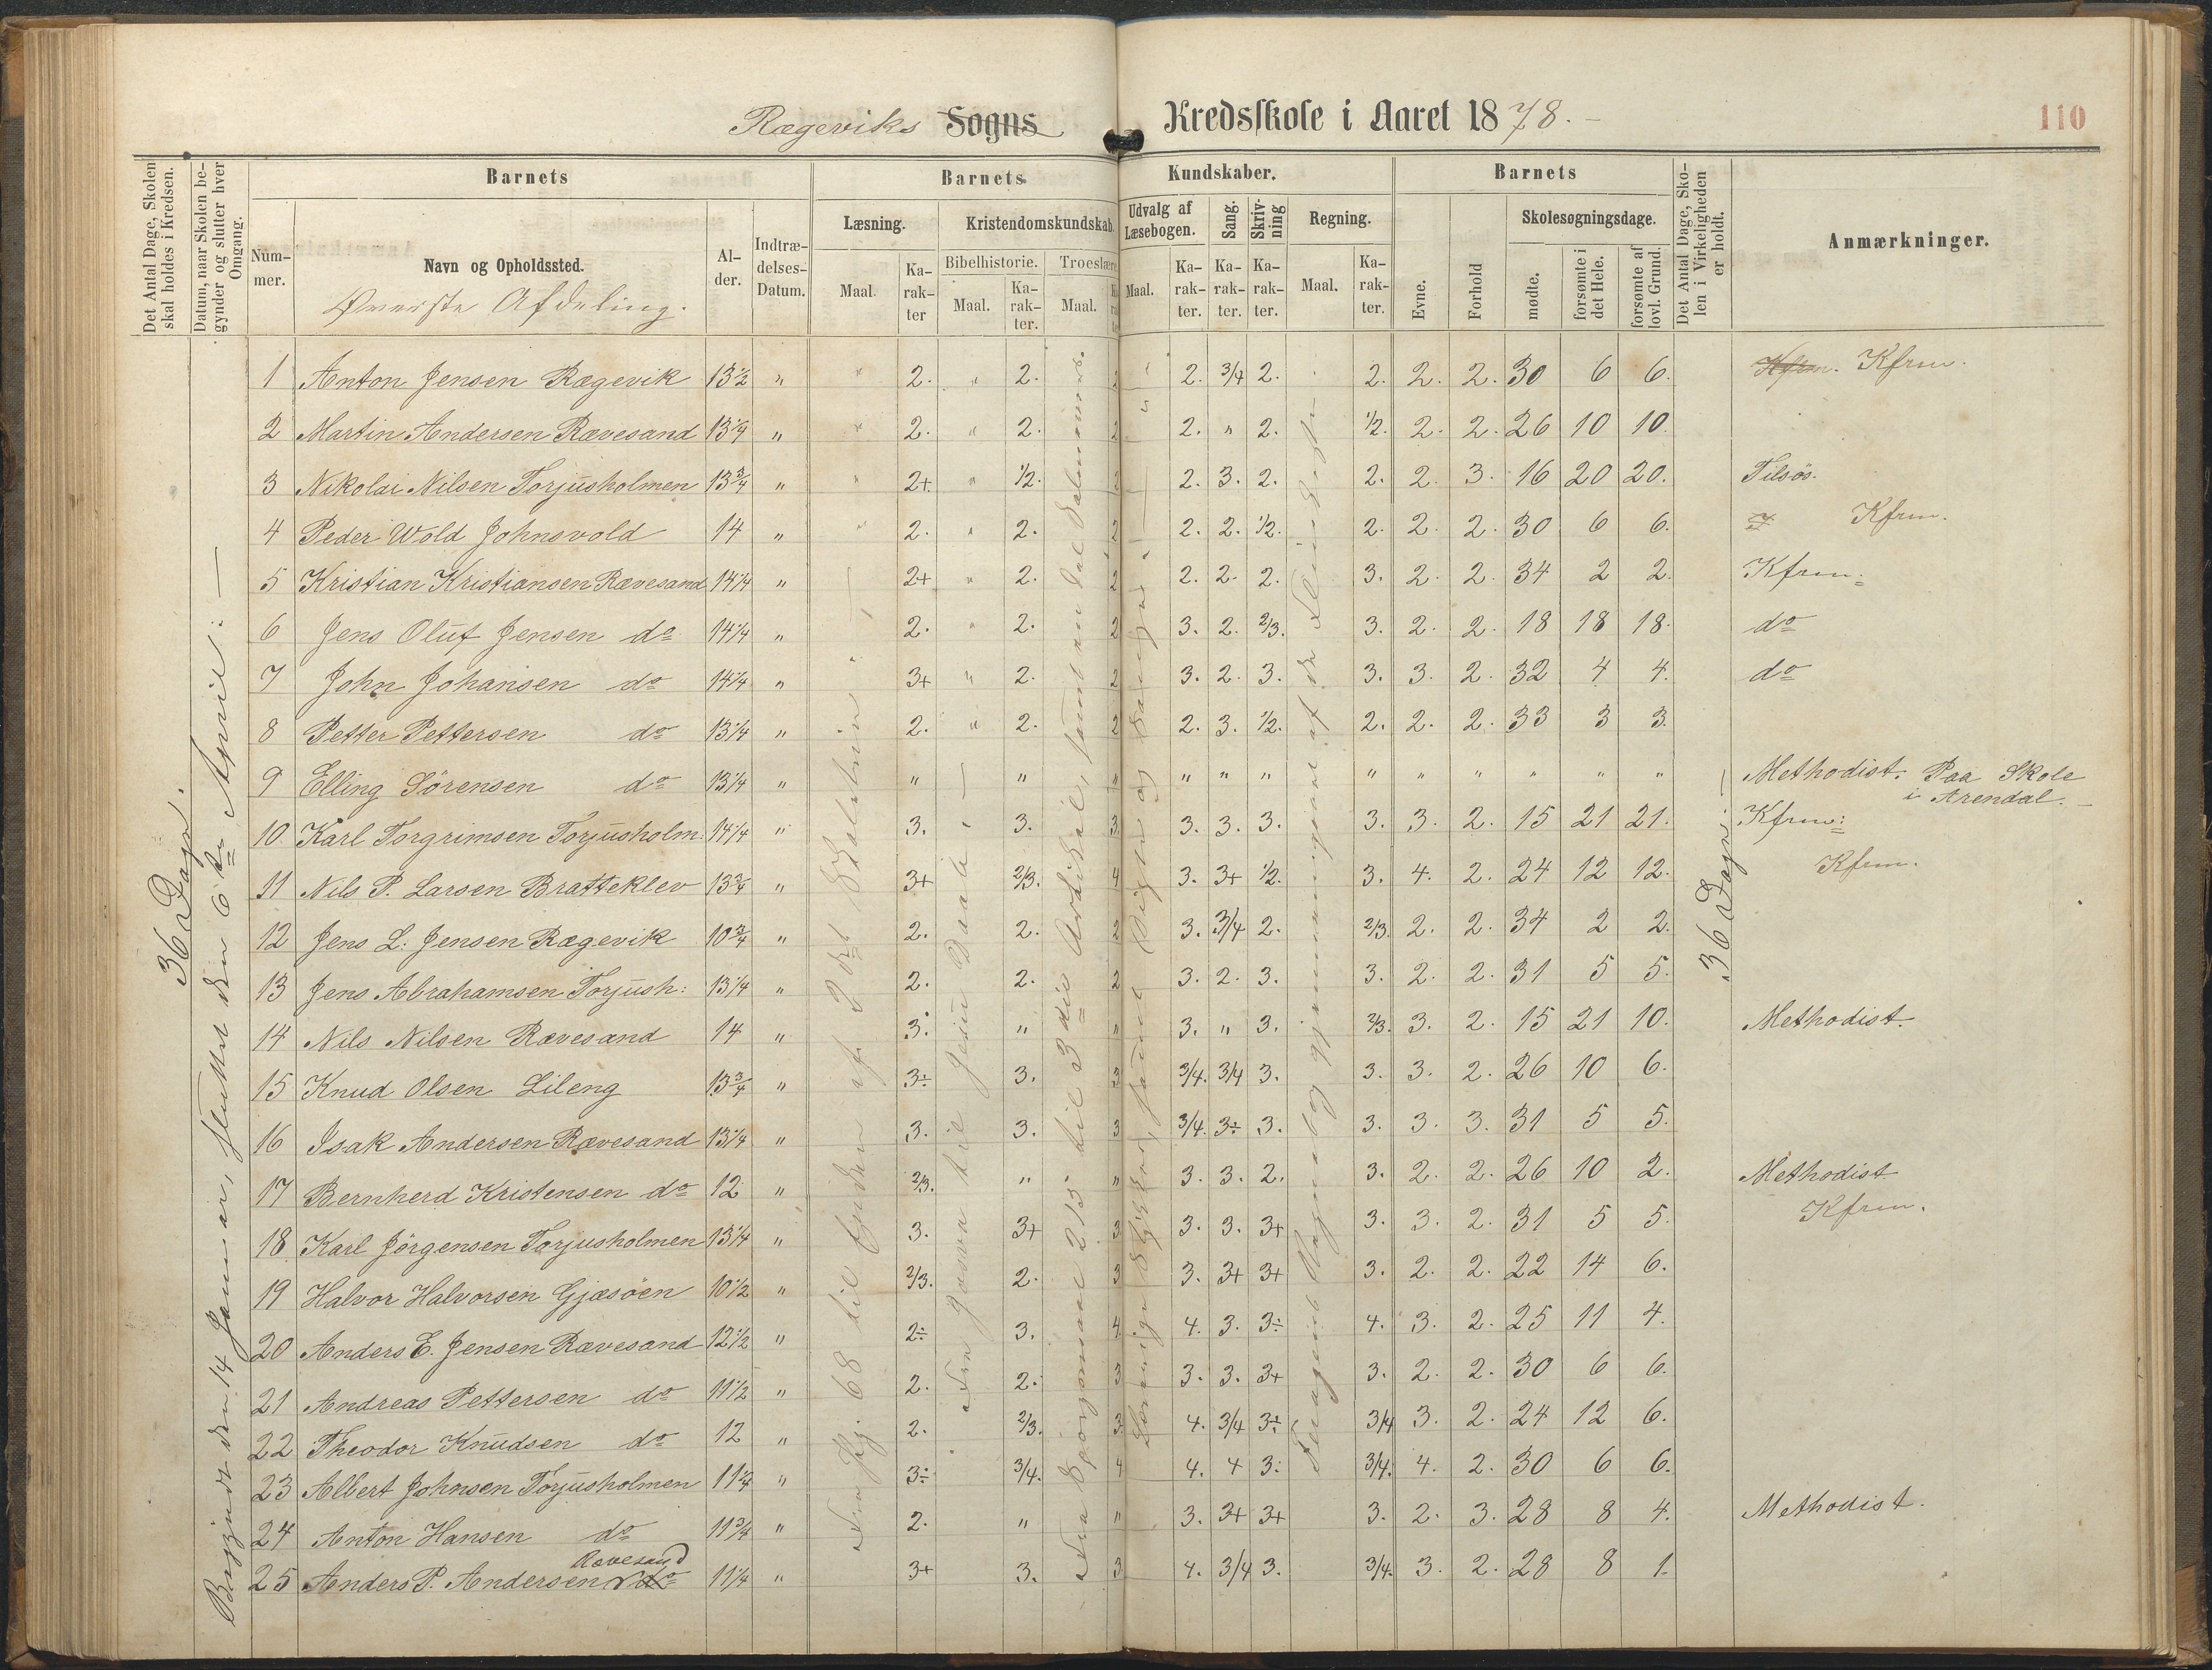 Rægeviks Sogns Kredsskole i Aaret 1878.
110
Det Antal Dage, Skolen skal holdes i Kredsen.
Datum, naar Skolen begynder og slutter hver Omgang.
Barnets
Nummer.
Navn og Opholdssted.
Øverste Afdeling.
Alder.
Indtrædelses-Datum.
Barnets Kundskaber.
Læsning.
Maal.
Karakter
Kristendomskundskab.
Bibelhistorie.
Maal.
Karakter.
Troeslære
Maal.
Udvalg af Læsebogen.
Maal.
Karakter.
Sang.
Karakter.
Skrivning
Karakter.
Regning.
Maal.
Karakter.
Barnets
Evne.
Forhold
Skolesøgningsdage.
mødte.
forsømte i det Hele.
forsømte af lovl. Grund.
Det Antal Dage, Skolen i Virkeligheden er holdt.
Anmærkninger.
36 Dage.
Begyndt den 14 Januar, sluttet den 6te April.
36 Dage.
1 Anton Jensen Rægevik 13½ " " 2. " 2. 2 2. 3/4 2. 2. 2. 2. 30 6 6. Kfrm. Kfrm.
2 Martin Andersen Rævesand 13 " " 2. " 2. 2 2. " 2. 1/2. 2. 2. 26 10 10.
3 Nikolai Nilsen Torjusholmen 13¾ " " 2+ " 1/2. 2 2. 3. 2. 2. 2. 3. 16 20 20. Tilsøs.
4 Peder Wold Johnsvold 14 " " 2. " 2. 2 2. 2. 1/2. 2. 2. 2. 30 6 6. Kfrm.
5 Kristian Kristiansen Rævesand 14¼ " 2+ " 2. 2 2. 2. 2. 3. 2. 2. 34 2 2. Kfrm.
6 Jens Oluf Jensen do 14¼ " 2. " 2. 2 3. 2. 2/3. 3. 2. 2. 18 18 18. do
7 John Johansen do 14¼ " 3+ " 2. 2 3. 2. 3. 3. 3. 2. 32 4 4. do
8 Petter Pettersen do 13¼ " 2. " 2. 2 2. 3. 1/2. 2. 2. 2. 33 3 3.
9 Elling Sørensen do 13¼ " " " " " " " " " " " " " Methodist. Paa Skole i Arendal.
10. Karl Torgrimsen Torjusholm: 14¼ " 3. 3. 3. 3. 3. 3. 3. 3. 2. 15 21 21. Kfrm:
11 Nils P. Larsen Bratteklev 13¾ " 3+ 2/3. 4 3. 3+ 1/2. 3. 4. 2. 24 12 12. Kfrm.
12 Jens L. Jensen Rægevik 10¾ " 2. 2. 2 3. 3/4 2. 2/3. 2. 2. 34 2 2.
13 Jens Abrahamsen Torjush: 13¼ " 2. 2. 2 3. 2. 3. 3. 2. 2. 31 5 5.
14 Nils Nilsen Rævesand 14 " 3. " " 3. " 3. 2/3. 3. 2. 15 21 10. Methodist.
15 Knud Olsen Lileng 13¾ " 3÷ 3. 3 3/4. 3/4 3. 3. 3. 2. 26 10 6.
16 Isak Andersen Rævesand 13¼ " 3. 3. 3 3/4. 3÷ 3. 3. 3. 3. 31 5 5.
17 Bernherd Kristensen do 12 " 2/3. " " 3. 3. 2. 3. 2. 2. 26 10 2. Methodist
18. Karl Jörgensen Torjusholmen 13¼ " 3. 3+ 3 3. 3. 3+ 3. 3. 2. 31 5 5. Kfrm.
19 Halvor Halvorsen Gjæsöen 10½ " 2/3. 2. 3 3. 3+ 3+ 3. 2. 2. 22 14 6.
20 Anders E. Jensen Rævesand 12½ " 2÷ 3. 4. 4. 3. 3÷ 4. 3. 2. 25 11 4.
21 Andreas Pettersen do 11½ " 2. 2. 3 3. 3. 3+ 3. 2. 2. 30 6 6.
22 Theodor Knudsen do 12 " 2. 2/3. 3. 4. 3/4 3÷ 3/4 3. 2. 24 12 6.
23 Albert Johnsen Torjusholmen 11¾ " 3÷ 3/4. 4 4. 4 3÷ 3/4. 4. 2. 30 6 6.
24 Anton Hansen do 11¾ " 2. " " 3. 3+ 3+ 3. 2. 3. 28 8 4. Methodist.
25 Anders P. Andersen do Rævesand 11¼ " 3+ 3. 3 4. 3/4 3. 3/4. 3. 2. 28 8 1.